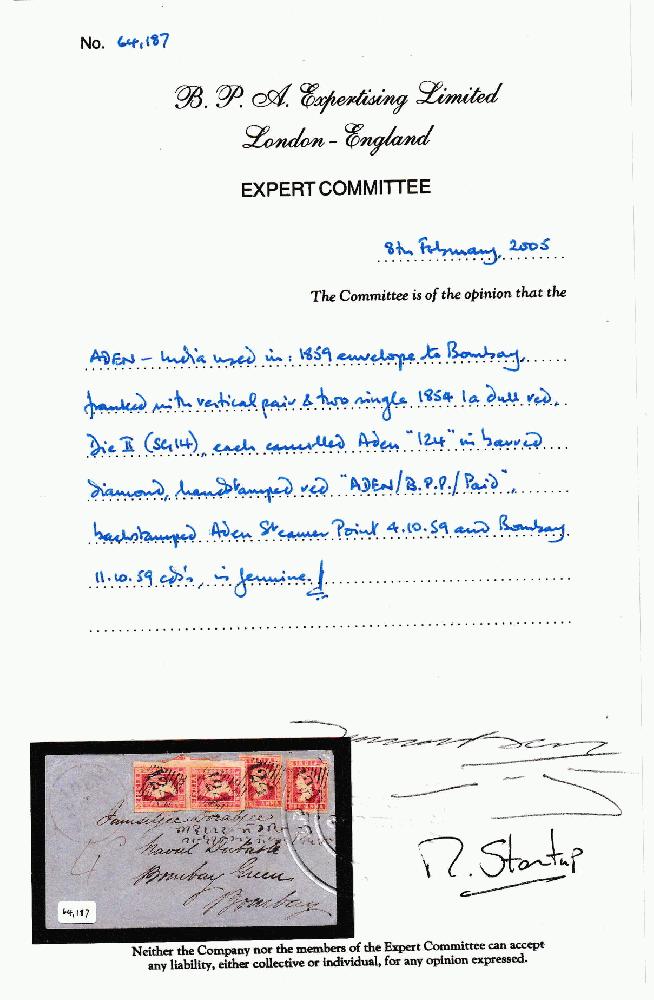 No. 64,187
B. P. A. Expertising Limited
London - England
EXPERT COMMITTEE
8th February, 2005
The Committee is of the opinion that the
ADEN - India used in: 1859 envelope to Bombay,
franked with vertical pair & two single 1854 1a dull red,
Die II (SG14), each cancelled Aden "124" in barred
diamond, handstamped red "ADEN/B.P.P./Paid",
backstamped Aden Steamer Point 4.10.59 and Bombay
11.10.59 cds's, is genuine.
R. Startup
Jamsetjee
Bombay Green
Bombay
64,187
Neither the Company nor the members of the Expert Committee can accept
any liability, either collective or individual, for any opinion expressed.